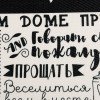 М ДОМЕ ПР
AND Говорить с
пожалу
ПРОЩАТЬ
Веселиться